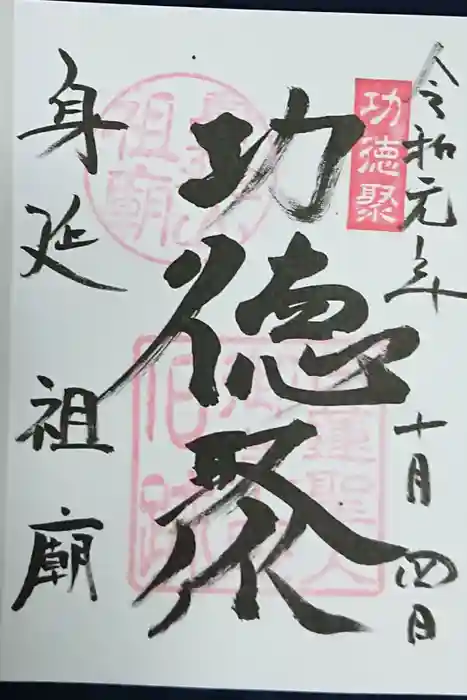 令和元年 十月 四日
功徳聚
功徳聚
身延 祖廟